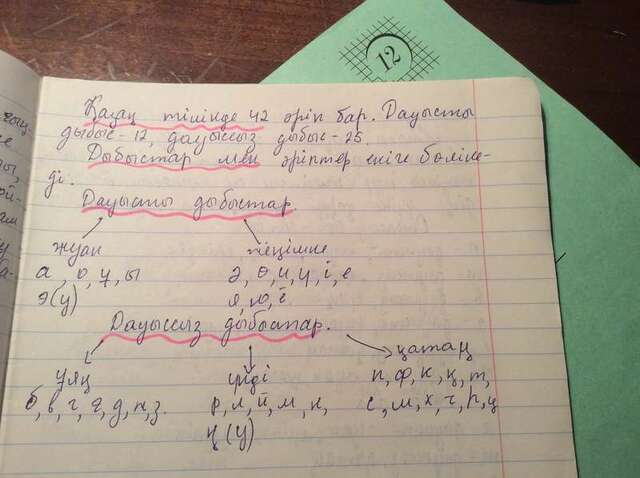 12
Қазақ тілінде 42 әріп бар. Дауысты
дыбыс - 12, дауыссыз дыбыс - 25.
Дыбыстар мен әріптер екіге бөліне-
ді.
Дауысты дыбыстар.
жуан
а, о, ұ, ы
э (у)
ә, ө, и, ү, і, е
я, ю, ё
Дауыссыз дыбыстар.
ұяң
үнді
қатаң
п, ф, к, қ, т,
р, л, й, м, н,
ң (у)